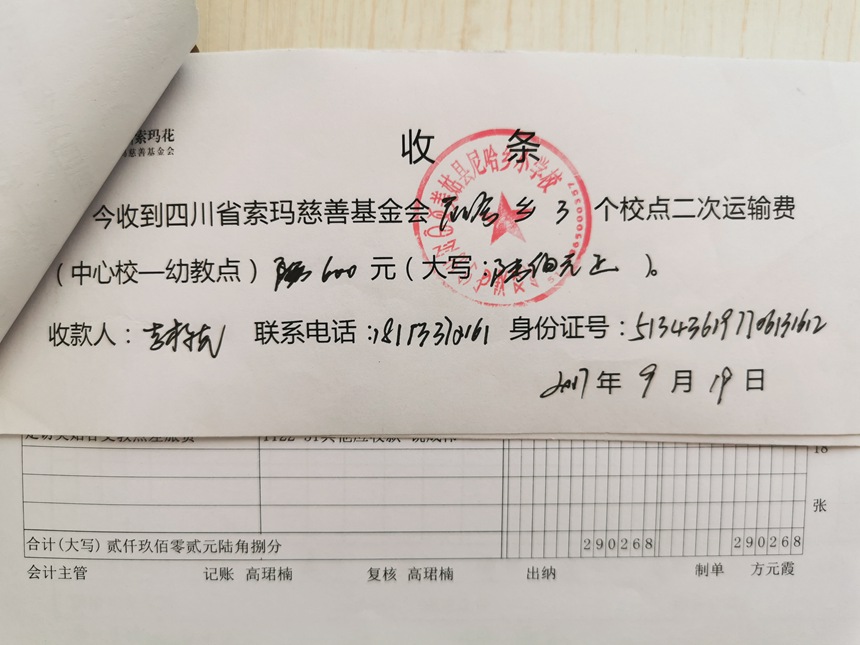 索玛花
慈善基金会
收 条
美姑县尼哈乡小学校
今收到四川省索玛慈善基金会 尼哈乡 3 个校点二次运输费
(中心校—幼教点) 600 元(大写:陆佰元正 )。
收款人: 联系电话:18173370161 身份证号:513436197706131612
2017 年 9 月 19 日
合计(大写) 贰仟玖佰零贰元陆角捌分 290268 290268
张
会计主管 记账 高珺楠 复核 高珺楠 出纳 制单 方元霞